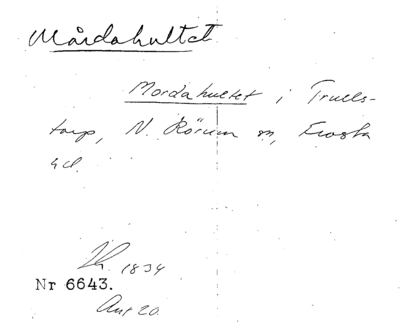 Mårdahultet
Mordahultet i Trulls-
torp, N. Rörum sn, Frosta
hd.
1834
Nr 6643.
Akt 20.